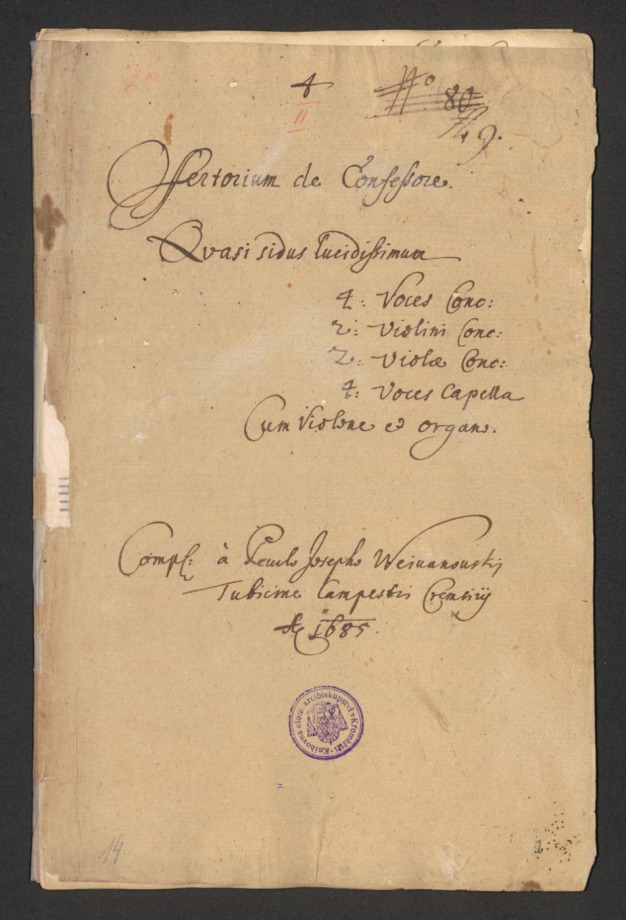 4
II
No 80
49.
Offertorium de Confessore.
Quasi sidus lucidissimum
4: Voces Conc:
2: Violini Conc:
2: Violæ Conc:
4: Voces Capella
Cum Violone et organo.
Comps: à Paulo Josepho Weiwanouskij
Tubicine Campestri Cremsirij
Ao 1685.
Knihovna olom. arcibiskupství v Kroměříži
14